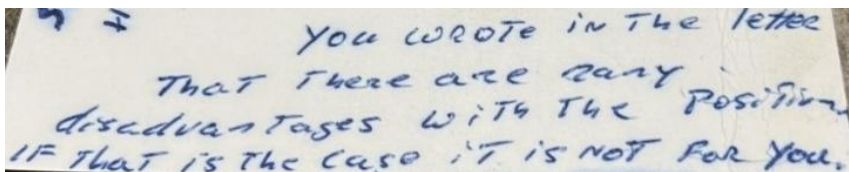 You wrote in the letter
That there are many
disadvantages with the Position
IF That is The Case iT is NOT FOR You.